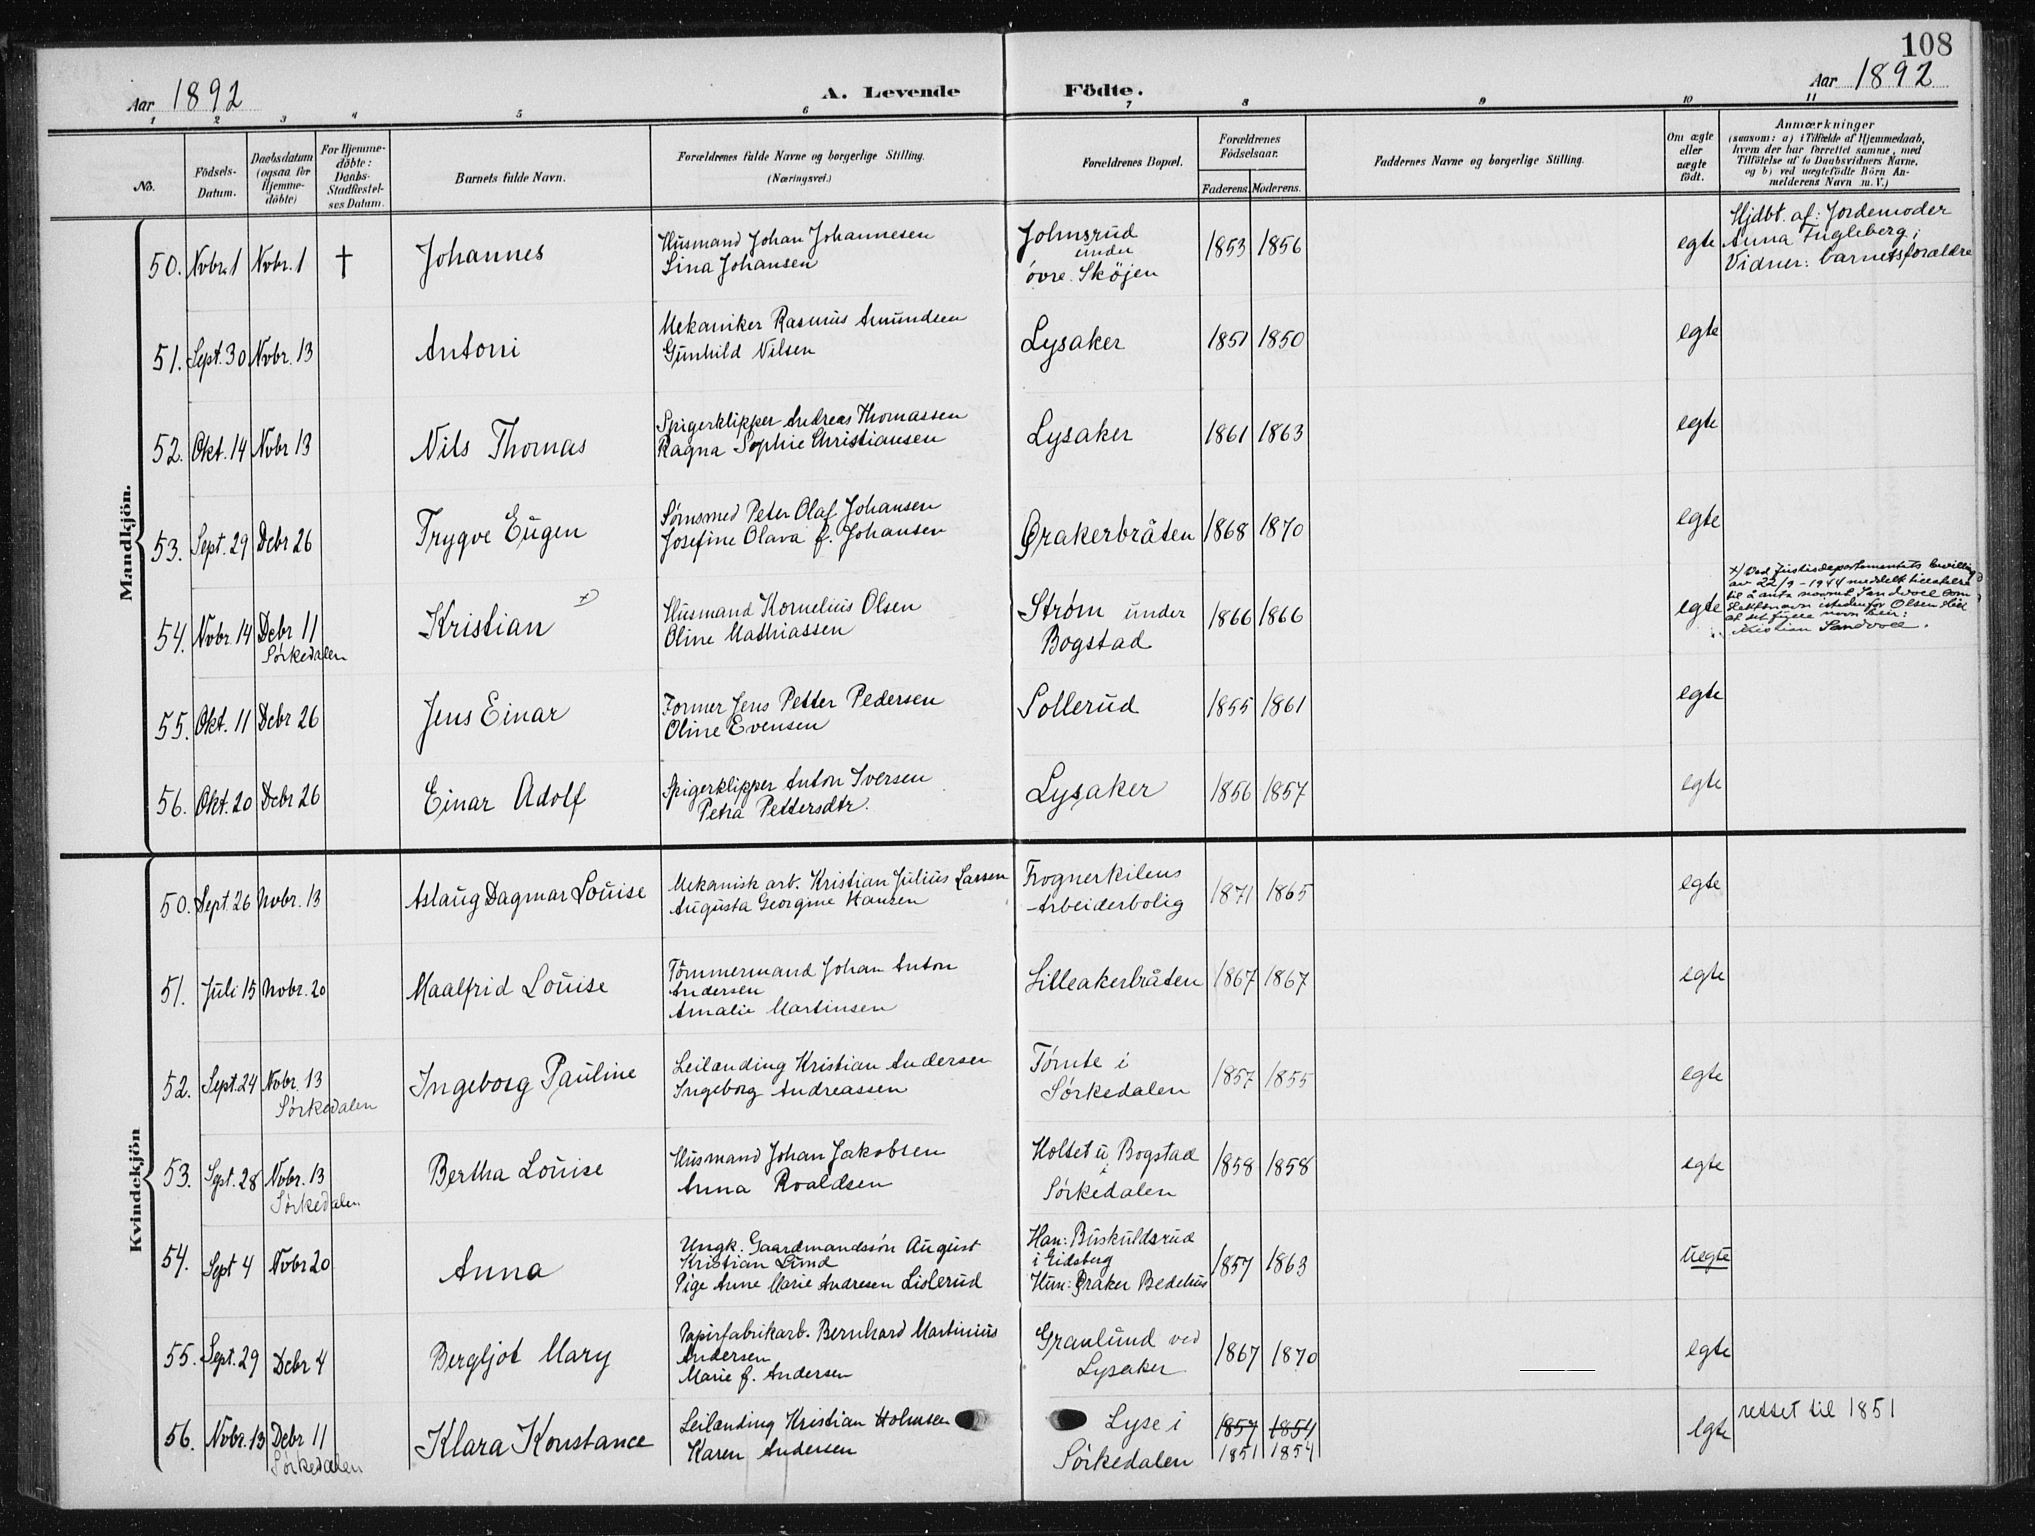 108
Aar 1892
A. Levende Födte.
Aar 1892
1 2 3 4 5 6 7 8 9 10 11
No.
Födsels-Datum.
Daabsdatum (ogsaa for Hjemme-döbte)
For Hjemme-döbte: Daabs-Stadfæstel-ses Datum.
Barnets fulde Navn.
Forældrenes fulde Navne og borgerlige Stilling.
(Næringsvei.)
Forældrenes Bopæl.
Forældrenes Födselsaar.
Faderens. Moderens.
Faddernes Navne og borgerlige Stilling.
Om ægte eller uægte födt.
Anmærkninger
(saasom: a) i Tilfælde af Hjemmedaab,
hvem der har forrettet samme, med
Tilföielse af to Daabsvidners Navne,
og b) ved uægtefödte Börn An-
melderens Navn m. V.)
Mandkjön.
50. Nvbr. 1 Nvbr. 1 † Johannes
Husmand Johan Johannesen
Lina Johansen
Johnsrud
under
övre. Sköjen
1853 1856 egte
Hjdbt. af: Jordemoder
Anna Fugleberg;
Vidner: barnetsforældre
51. Sept. 30 Nvbr. 13 Antoni
Mekaniker Rasmus Amundsen
Gunhild Nilsen
Lysaker 1851 1850 egte
52. Okt. 14 Nvbr 13 Nils Thomas
Spigerklipper Andreas Thomassen
Ragna Sophie Christiansen
Lysaker 1861 1863 egte
53. Sept. 29 Debr 26 Trygve Eugen
Sømsmed Peter Olaf Johansen
Josefine Olava f. Johansen
Ørakerbråten 1868 1870 egte
54. Nvbr. 14 Debr 11 Kristian x)
Sørkedalen
Husmand Kornelius Olsen
Oline Mathiassen
Strøm under
Bogstad
1866 1866 egte
x) Ved Justisdepartementets bevilling
av 22/9 - 1944 meddelt tillatelse
til å anta navnet Sandvoll som
slektsnavn istedenfor Olsen slik
at det fulle navn blir:
Kristian Sandvoll.
55. Okt. 11 Debr 26 Jens Einar
Former Jens Petter Pedersen
Oline Evensen
Sollerud 1855 1861 egte
56. Okt. 20 Debr 26 Einar Adolf
Spigerklipper Anton Iversen
Petra Pettersdtr.
Lysaker 1856 1857 egte
Kvindekjön
50. Sept. 26 Nvbr. 13 Aslaug Dagmar Louise
Mekanisk arb. Kristian Julius Larsen
Augusta Georgine Hansen
Frognerkilens
Arbeiderbolig
1871 1865 egte
51. Juli 15 Nvbr. 20 Maalfrid Louise
Tömmermand Johan Anton
Andersen
Amalie Martinsen
Lilleakerbråten 1867 1867 egte
52. Sept. 24 Nvbr. 13 Ingeborg Pauline
Sørkedalen
Leilanding Kristian Andersen
Ingeborg Andreassen
Tømte i
Sørkedalen
1857 1855 egte
53. Sept. 28 Nvbr. 13 Bertha Louise
Sørkedalen
Husmand Johan Jakobsen
Anna Roaldsen
Holtet u Bogstad
i
Sørkedalen
1858 1858 egte
54. Sept 4 Nvbr 20 Anna
Ungk. Gaardmandssön August
Kristian Lund
Pige Anne Marie Andresen Lislerud
Han: Buskuldsrud
i Eidsberg
Hun: Øraker Bedehus
1857 1863 uegte
55. Sept. 29 Debr 4 Bergljot Mary
Papirfabrikarb. Bernhard Martinius
Andersen
Marie f. Andersen
Granlund ved
Lysaker
1867 1870 egte
56. Nvbr. 13 Debr 11 Klara Konstance
Sørkedalen
Leilanding Kristian Holmsen
Karen Andersen
Lyse i
Sørkedalen
1857 1854
1851 1854
egte
rettet til 1851